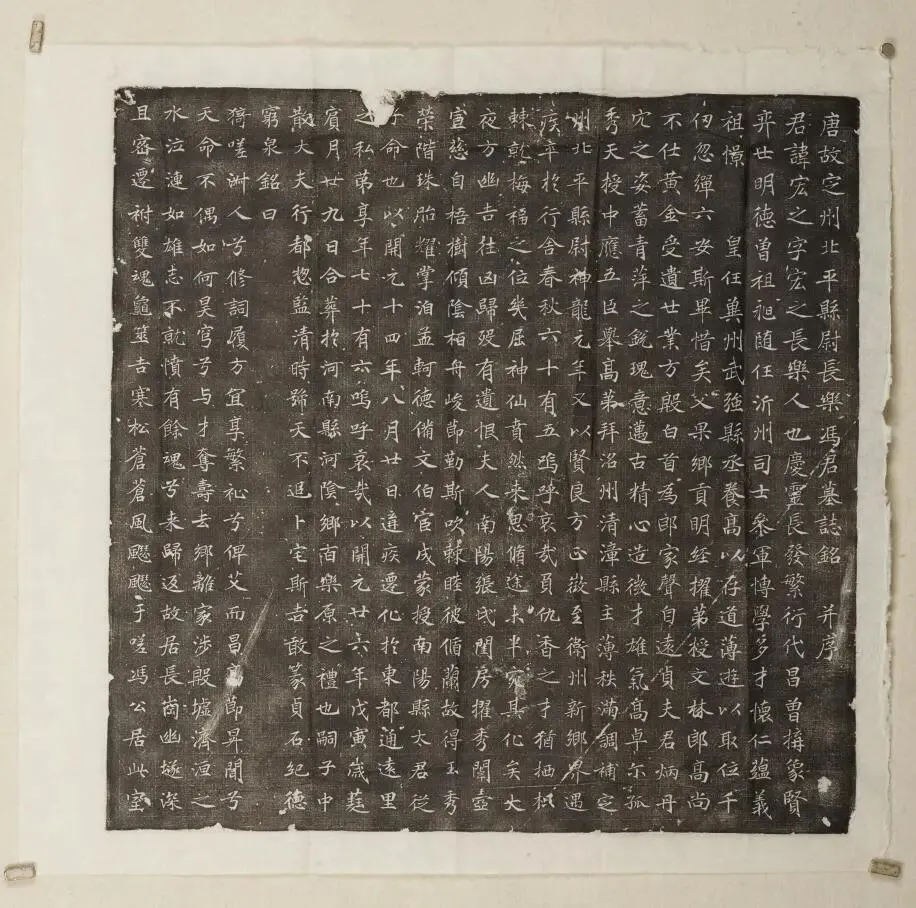 唐故定州北平縣尉長樂馮君墓誌銘 并序
君諱宏之字宏之長樂人也慶靈長發繁衍代昌曾搆篆賢
弈世明德曾祖昶隨任沂州司士叅軍博學多才懷仁蘊義
祖憬 皇任兾州武強縣丞養高以存道薄遊以取位千
仞忽殫六安斯畢惜矣父果鄉貢明經擢第授文林郎高尚
不仕黃金受遺廿業方殷白首為郎家聲自遠貞夫君炳丹
穴之姿蓄青萍之銳瑰意邁古精心造微才雄氣高卓尓孤
秀天授中應五臣舉高第拜洺州清漳縣主薄秩滿調補定
州北平縣尉神龍元年又以賢良方正徵至衛州新鄉界遇
疾卒於行舍春秋六十有五嗚呼哀哉負仇香之才猶栖枳
棘乾梅福之位幾屈神仙賁然來思脩途未半穸其化矣大
夜方幽吉往凶歸歿有遺恨夫人南陽張氏閨房擢秀閫壼
宣慈自梧樹傾陰栢舟峻節勤斯吹棘睦彼循蘭故得玉秀
榮階珠胎耀掌洎孟軻德備文伯宦成蒙授南陽縣太君從
子命也以開元十四年八月廿日遘疾遷化於東都通遠里
之私第享年七十有六嗚呼哀哉以開元廿六年戊寅歲蕤
賓月廿九日合葬於河南縣河陰鄉百樂原之禮也嗣子中
散大夫行都惣監清時號天不逞卜宅斯吉敢篆貞石紀德
窮泉銘曰
猗嗟淋人兮修詞履方宜享繁祉兮俾艾而昌高節昇聞兮
天命不偶如何昊穹兮与才奪壽去鄉離家涉殷墟濟洹之
水泣漣如雄志不就憤有餘魂兮来歸返故居長崗幽壝深
且密遷祔雙魂龜筮吉寒松蒼蒼風飂飂于嗟馮公居此室